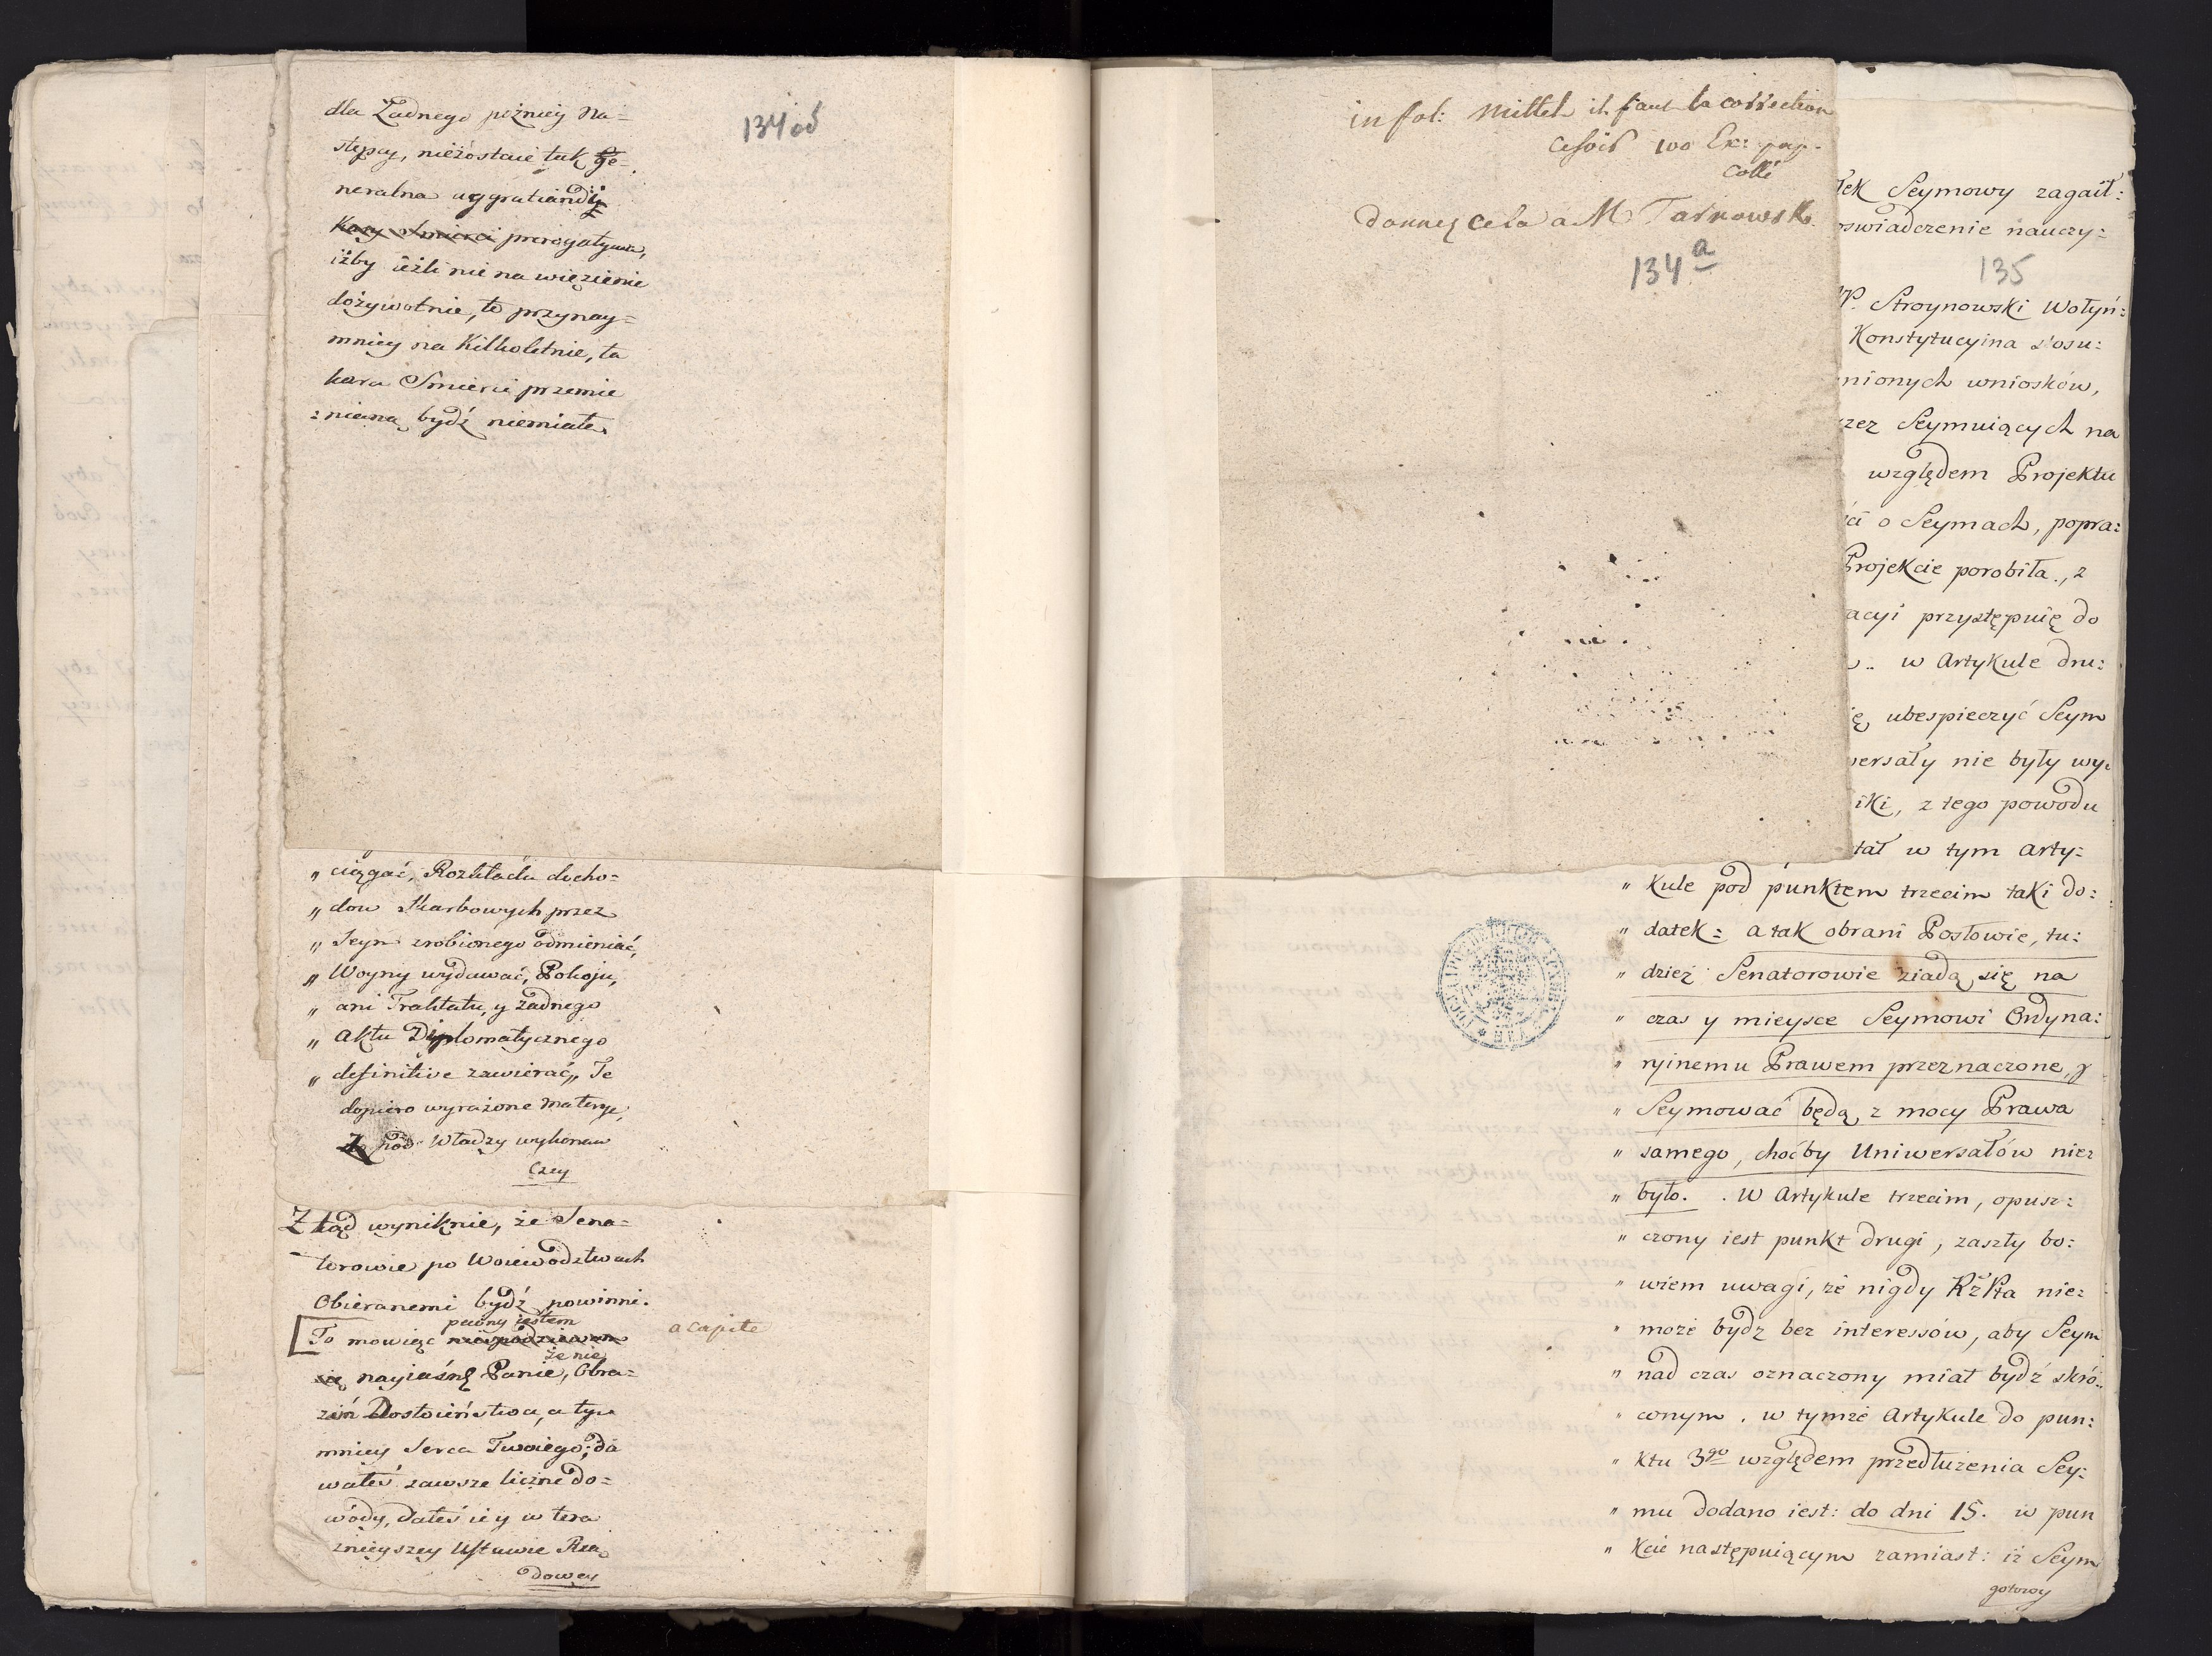 134 od
dla Żadnego poźniey Na=
stępcy, niezostaie tak Ge=
neralna aggratiandi
kary Smierci prerogatywa,
iżby ieżli nie na więzienie
dożywotnie, to przynay=
mniey na Kilkoletnie, ta
kara Smierci przemie
=nieną bydź niemiała.
„ ciągać, Rozkładu docho=
„ dow Skarbowych przez
„ Seym zrobionego odmieniać,
„ Woyny wydawać, Pokoju,
„ ani Traktatu, y żadnego
„ Aktu Diplomatycznego
„ definitive zawierać„ Te
dopiero wyrażone Materye,
pod Władzy wykonaw
czey
Ztąd wyniknie, że Sena=
torowie po Woiewodztwach
Obieranemi bydź powinni.
pewny iestem
To mowiąc niespodziewam a capite
że nie
się nayiaśn Panie, Obra=
ziń Dostoieństwa, a tym
mniey Serca Twoiego; da
wałeś zawsze liczne do=
wody, dałeś iey w tera
znieyszey Ustawie Rzą
dowey
in fol: Mittel il faut la correction
100 Ex: pap.
collé
donnez cela a M Tarnowsk
134 a
łek Seymowy zagaił:
oswiadczenie nauczy:
135
P. Stroynowski Wołyń:
Konstytucyina z'osu:
nionych wniosków,
rzez Seymuiących na
względem Projektu
ści o Seymach, popra:
Projekcie porobiła., z
acyi przystępuię do
w Artykule dru:
ię ubespieczyć Seym
wersały nie były wy:
iki, z tego powodu
tał w tym Arty:
„ kule pod punktem trzecim taki do:
„ datek: a tak obrani Posłowie, tu:
„ dzież Senatorowie ziadą się na
„ czas y mieysce Seymowi Ordyna:
„ ryinemu Prawem przeznaczone, y
„ Seymować będą z mocy Prawa
„ samego, choćby Uniwersałów nie:
„ było. . W Artykule trzecim, opusz:
„ czony iest punkt drugi, zaszły bo:
„ wiem uwagi, że nigdy RżPta nie:
„ może bydz bez interessów, aby Seym
„ nad czas oznaczony miał bydź skró„
„ conym. w tymże Artykule do pun:
„ ktu 3go względem przedłużenia Sey:
„ mu dodano iest: do dni 15. w pun
„ kcie następuiącym zamiast: iż Seym
gotowy